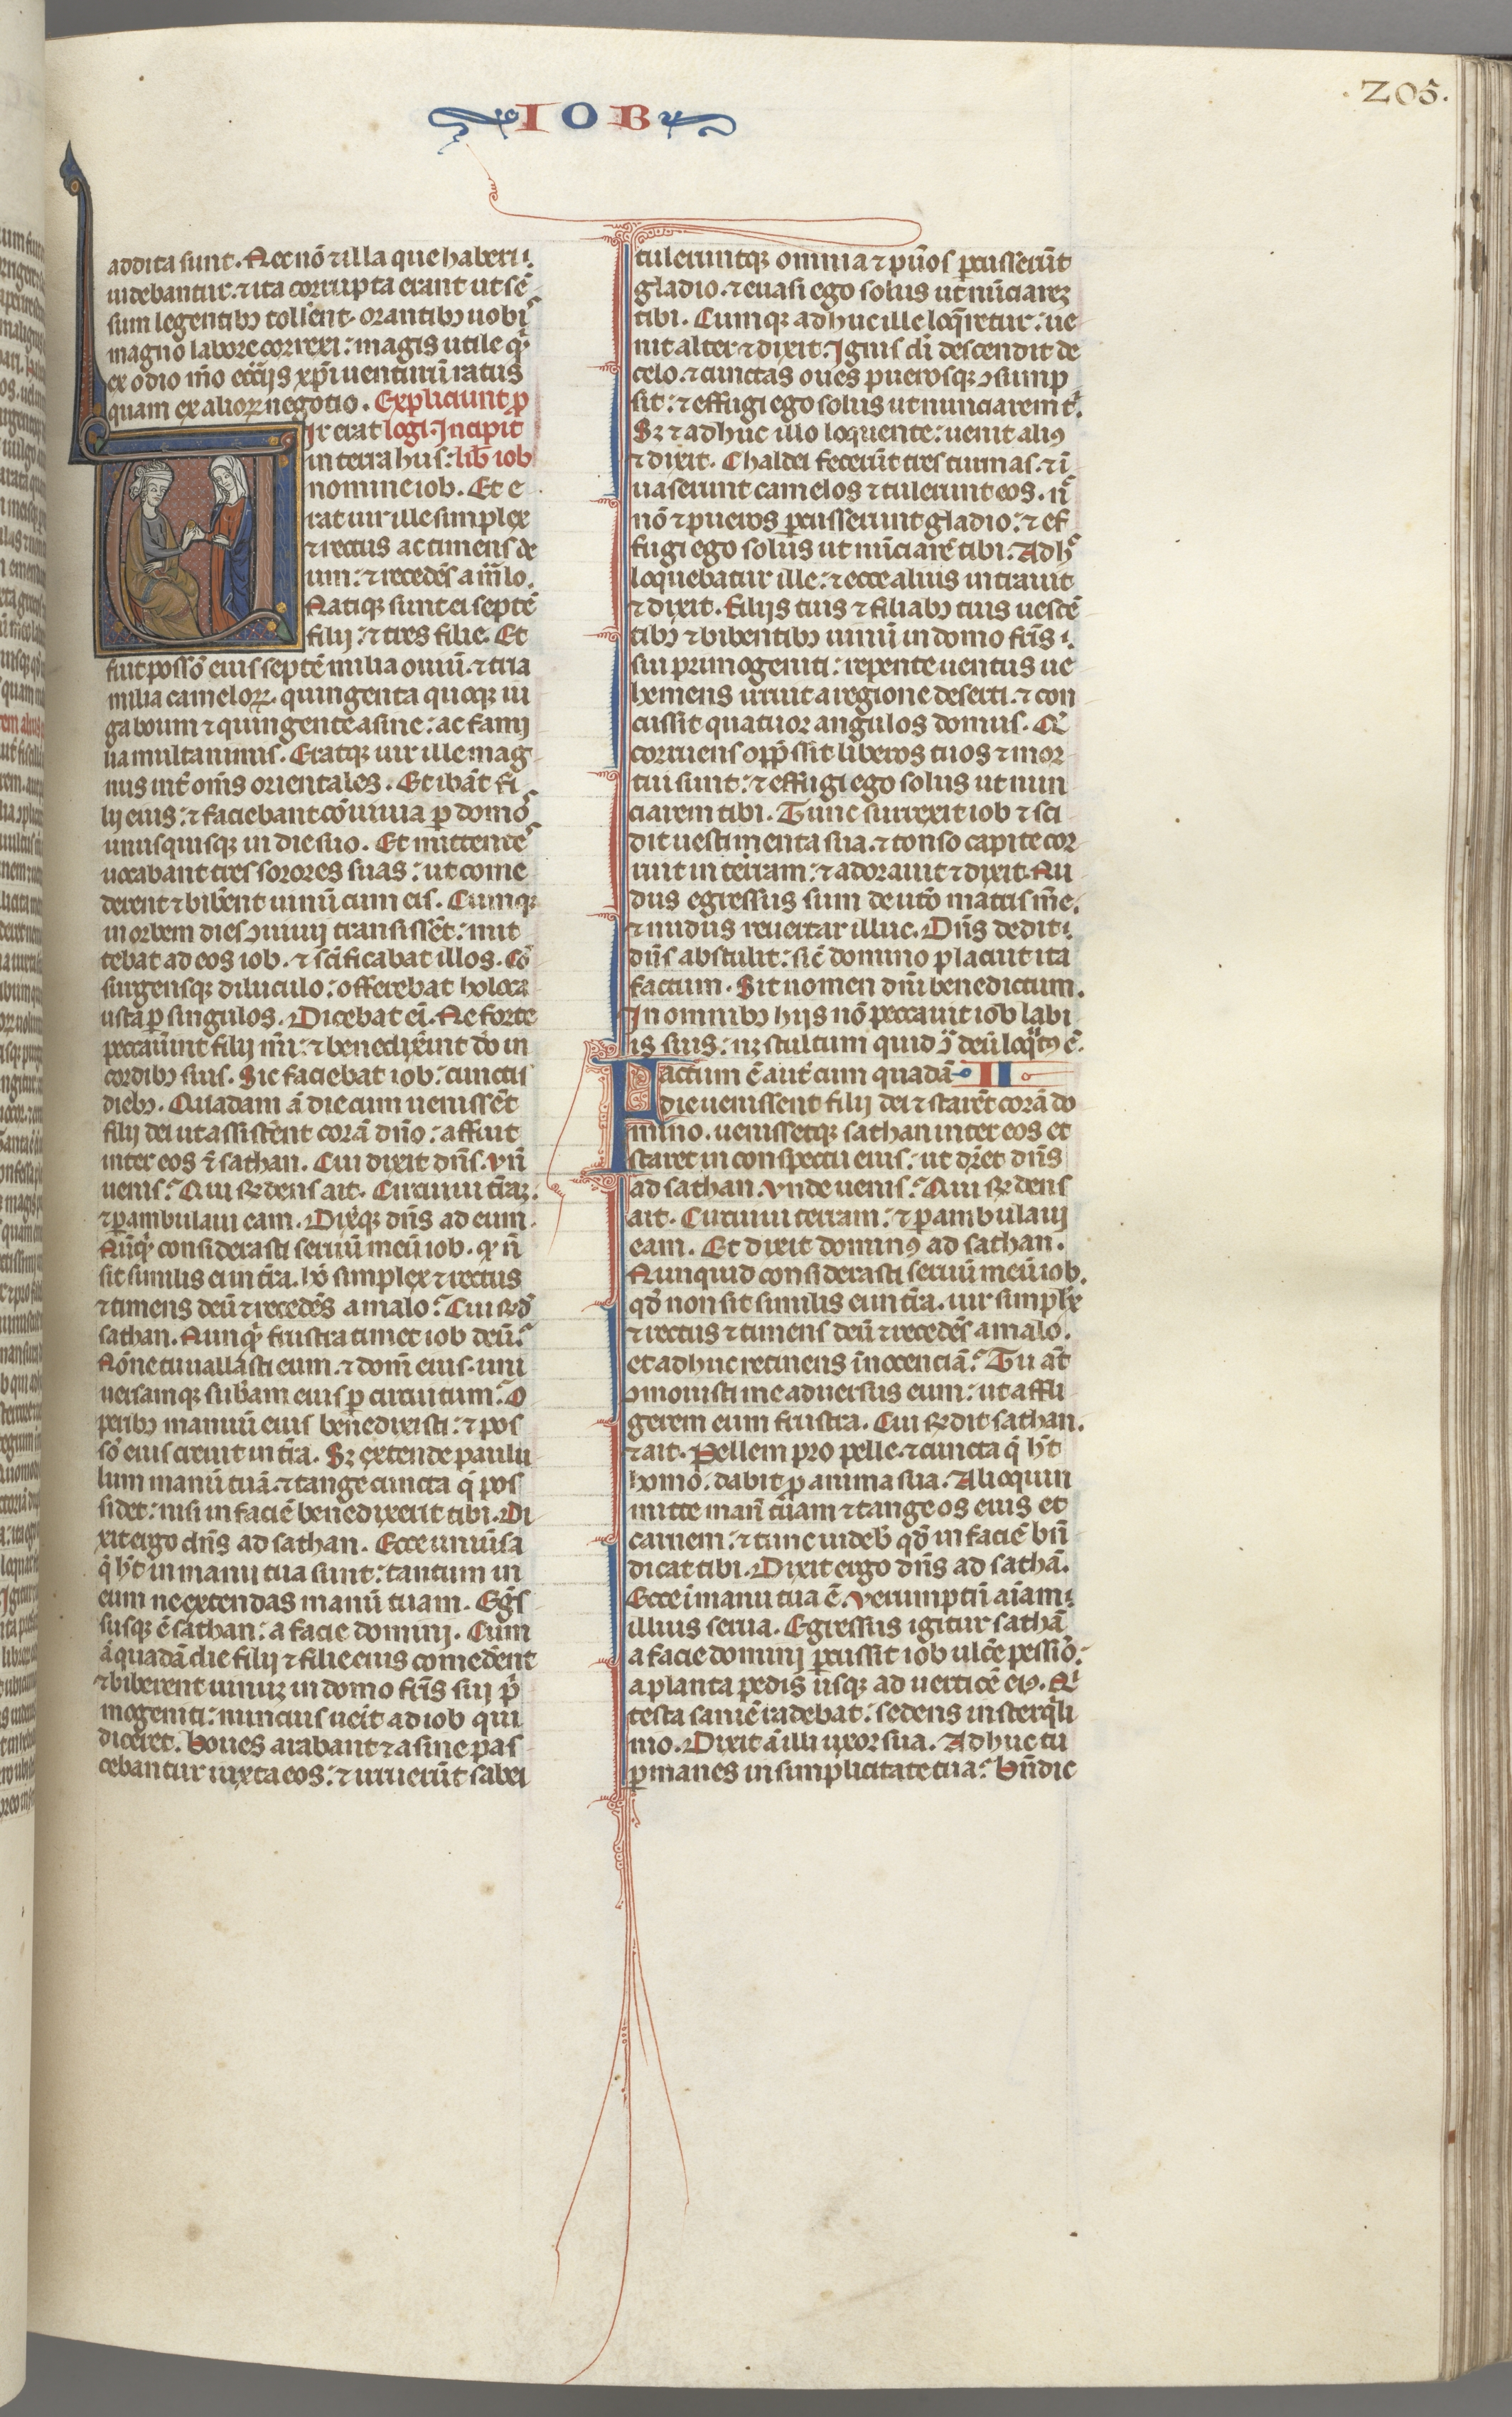 IOB
205.
addita sunt. Nec nō ⁊ illa que haberi
uidebantur. ⁊ ita corrupta erant ut sē
sum legentibꝫ tollerent. orantibꝫ uobis
magno labore correxi: magis utile qͥ
ex odio mͦo eccͥijs xp̄i uenturū ratus
quam ex alioꝝ negotio. Expliciunt ꝓ
Vir erat logi. Incipit
in terra hus: lib̄ iob
nomine iob. Et e
rat uir ille simplex
⁊ rectus ac timens de
um: ⁊ recedēs a malo.
Natiqꝫ sunt ei septē
filij: ⁊ tres filie. Et
fuit possō eius septē milia ouiū. ⁊ tria
milia cameloꝝ. quingenta quoqꝫ iu
ga boum ⁊ quingente asine: ac fami
lia multa nimis. Eratqꝫ uir ille mag
nus int̄ om̄s orientales. Et ibāt fi
lij eius: ⁊ faciebant cōuiuia ꝑ domos
unusquisqꝫ in die suo. Et mittentes
uocabant tres sorores suas: ut come
derent ⁊ biberent uinū cum eis. Cumqꝫ
in orbem dies ↄuiuij transissēt: mit
tebat ad eos iob. ⁊ sc̄ificabat illos. Cō
surgensqꝫ diluculo: offerebat holoca
usta ꝑ singulos. Dicebat eī. Ne forte
peccauerint filij mi: ⁊ benedixerint dō in
cordibꝫ suis. Sic faciebat iob: cunctis
diebꝫ. Quadam ā die cum uenissēt
filij dei ut assisterent corā dn̄o: affuit
inter eos ⁊ sathan. Cui dixit dn̄s. Vn̄
uenis? Qui rn̄dens ait. Circuiui t̄raꝫ.
⁊ ꝑambulaui eam. Dixitqꝫ dn̄s ad eum.
Nūqͥ considerasti seruū meū iob. qͥ n̄
sit similis ei in t̄ra. hō simplex ⁊ rectus
⁊ timens deū ⁊ recedēs a malo? Cui rn̄dͥ
sathan. Nunqͥ frustra timet iob deū?
Nōne tu uallasti eum. ⁊ dom̄ eius. uni
uersamqꝫ sub̄am eius ꝑ circuitum? O
peribꝫ manuū eius benedixisti: ⁊ pos
sō eius creuit in t̄ra. Sꝫ extende paulu
lum manū tuā. ⁊ tange cuncta qͥ pos
sidet: nisi in faciē benedixerit tibi. Di
xit ergo dn̄s ad sathan. Ecce uniūsa
qͥ h̄t in manu tua sunt: tantum in
eum ne extendas manū tuam. Egͥs
susqꝫ ē sathan: a facie domini. Cum
ā quadā die filij ⁊ filie eius comederent
⁊ biberent uinuꝫ in domo fr̄is sui pͥ
mogeniti: nuncius ueīt ad iob qui
diceret. Boues arabant ⁊ asine pas
cebantur iuxta eos: ⁊ irruerūt sabei
tuleruntqꝫ omnia ⁊ pūos ꝑcusserūt
gladio. ⁊ euasi ego solus ut nūciareꝫ
tibi. Cumqꝫ adhuc ille loqͥretur: ue
nit alter ⁊ dixit. Ignis di descendit de
celo. ⁊ cunctas oues puerosqꝫ ↄsump
sit: ⁊ effugi ego solus ut nunciarem tͥ.
Sꝫ ⁊ adhuc illo loquente: uenit aliꝰ
⁊ dixit. Chaldei fecerūt tres turmas. ⁊ ī
uaserunt camelos ⁊ tulerunt eos. n̄
nō ⁊ pueros ꝑcusserunt gladio: ⁊ ef
fugi ego solus ut nūciarē tibi. Adhͨ
loquebatur ille: ⁊ ecce alius intrauit
⁊ dixit. Filijs tuis ⁊ filiabꝫ tuis uescē
tibꝫ ⁊ bibentibꝫ uinū in domo fr̄is
sui primogeniti: repente uentus ue
hemens irruit a regione deserti. ⁊ con
cussit quatuor angulos domus. Qͥ
corruens opp̄ssit liberos tuos ⁊ mor
tui sunt: ⁊ effugi ego solus ut nun
ciarem tibi. Tunc surrexit iob ⁊ sci
dit uestimenta sua. ⁊ tonso capite cor
ruit in terram: ⁊ adorauit ⁊ dixit. Nu
dus egressus sum de utͦo matris m̄e.
⁊ nudus reuertar illuc. Dn̄s dedit:
dn̄s abstulit: sic̄ domino placuit ita
factum. Sit nomen dn̄i benedictum.
In omnibꝫ hijs nō peccauit iob labi
is suis: nꝫ stultum quid ↄͣ deū loqͥtꝰ ē.
Factum ē aut̄ cum quadā II
die uenissent filij dei ⁊ starēt corā do
mino. uenissetqꝫ sathan inter eos et
staret in conspectu eius: ut dr̄et dn̄s
ad sathan. Vnde uenis? Qui rn̄dens
ait. Circuiui terram: ⁊ ꝑambulaui
eam. Et dixit dominꝰ ad sathan.
Nunquid considerasti seruū meū iob.
qd̄ non sit similis ei in t̄ra. uir simplex
⁊ rectus ⁊ timens deū ⁊ recedēs a malo.
et adhuc retinens īnocenciā? Tu at̄
ↄmouisti me aduersus eum: ut affli
gerem eum frustra. Cui rn̄dit sathan.
⁊ ait. Pellem pro pelle. ⁊ cuncta qͥ h̄t
homo. dabit ꝑ anima sua. Alioquin
mitte man̄ tuam ⁊ tange os eius et
carnem: ⁊ tunc uideb̄ qd̄ in faciē bn̄
dicat tibi. Dixit ergo dn̄s ad sathā.
Ecce ī manu tua ē. Verumptn̄ aīam
illius serua. Egressus igitur sathā
a facie domini ꝑcussit iob ulc̄e pessiō.
a planta pedis usqꝫ ad uerticē eiꝰ. Qͥ
testa saniē radebat: sedens in sterqͥli
nio. Dixit ā illi uxor sua. Adhuc tu
ꝑmanes in simplicitate tua? Bn̄dic